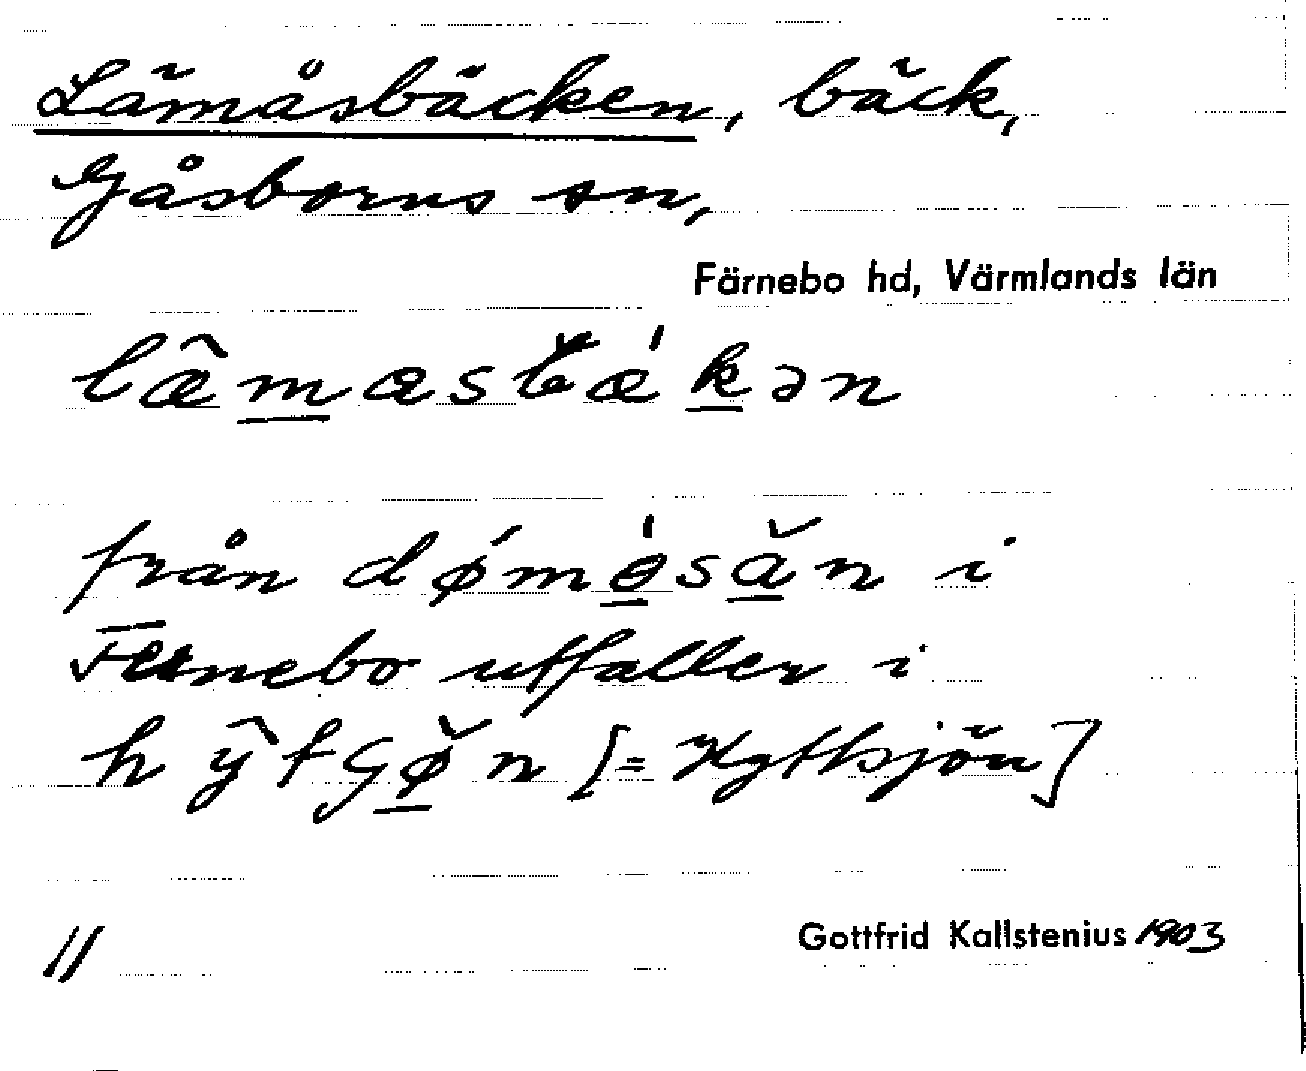 Lämåsbäcken, bäck,
Gåsborns sn,
Färnebo hd, Värmlands län
læ̂m̲æsbǽk̲ən
från dǿmɵ̲́să̲n i
Fernebo utfaller i
hŷtʃø̲̆n [= Hyttsjön]
11
Gottfrid Kallstenius 1903